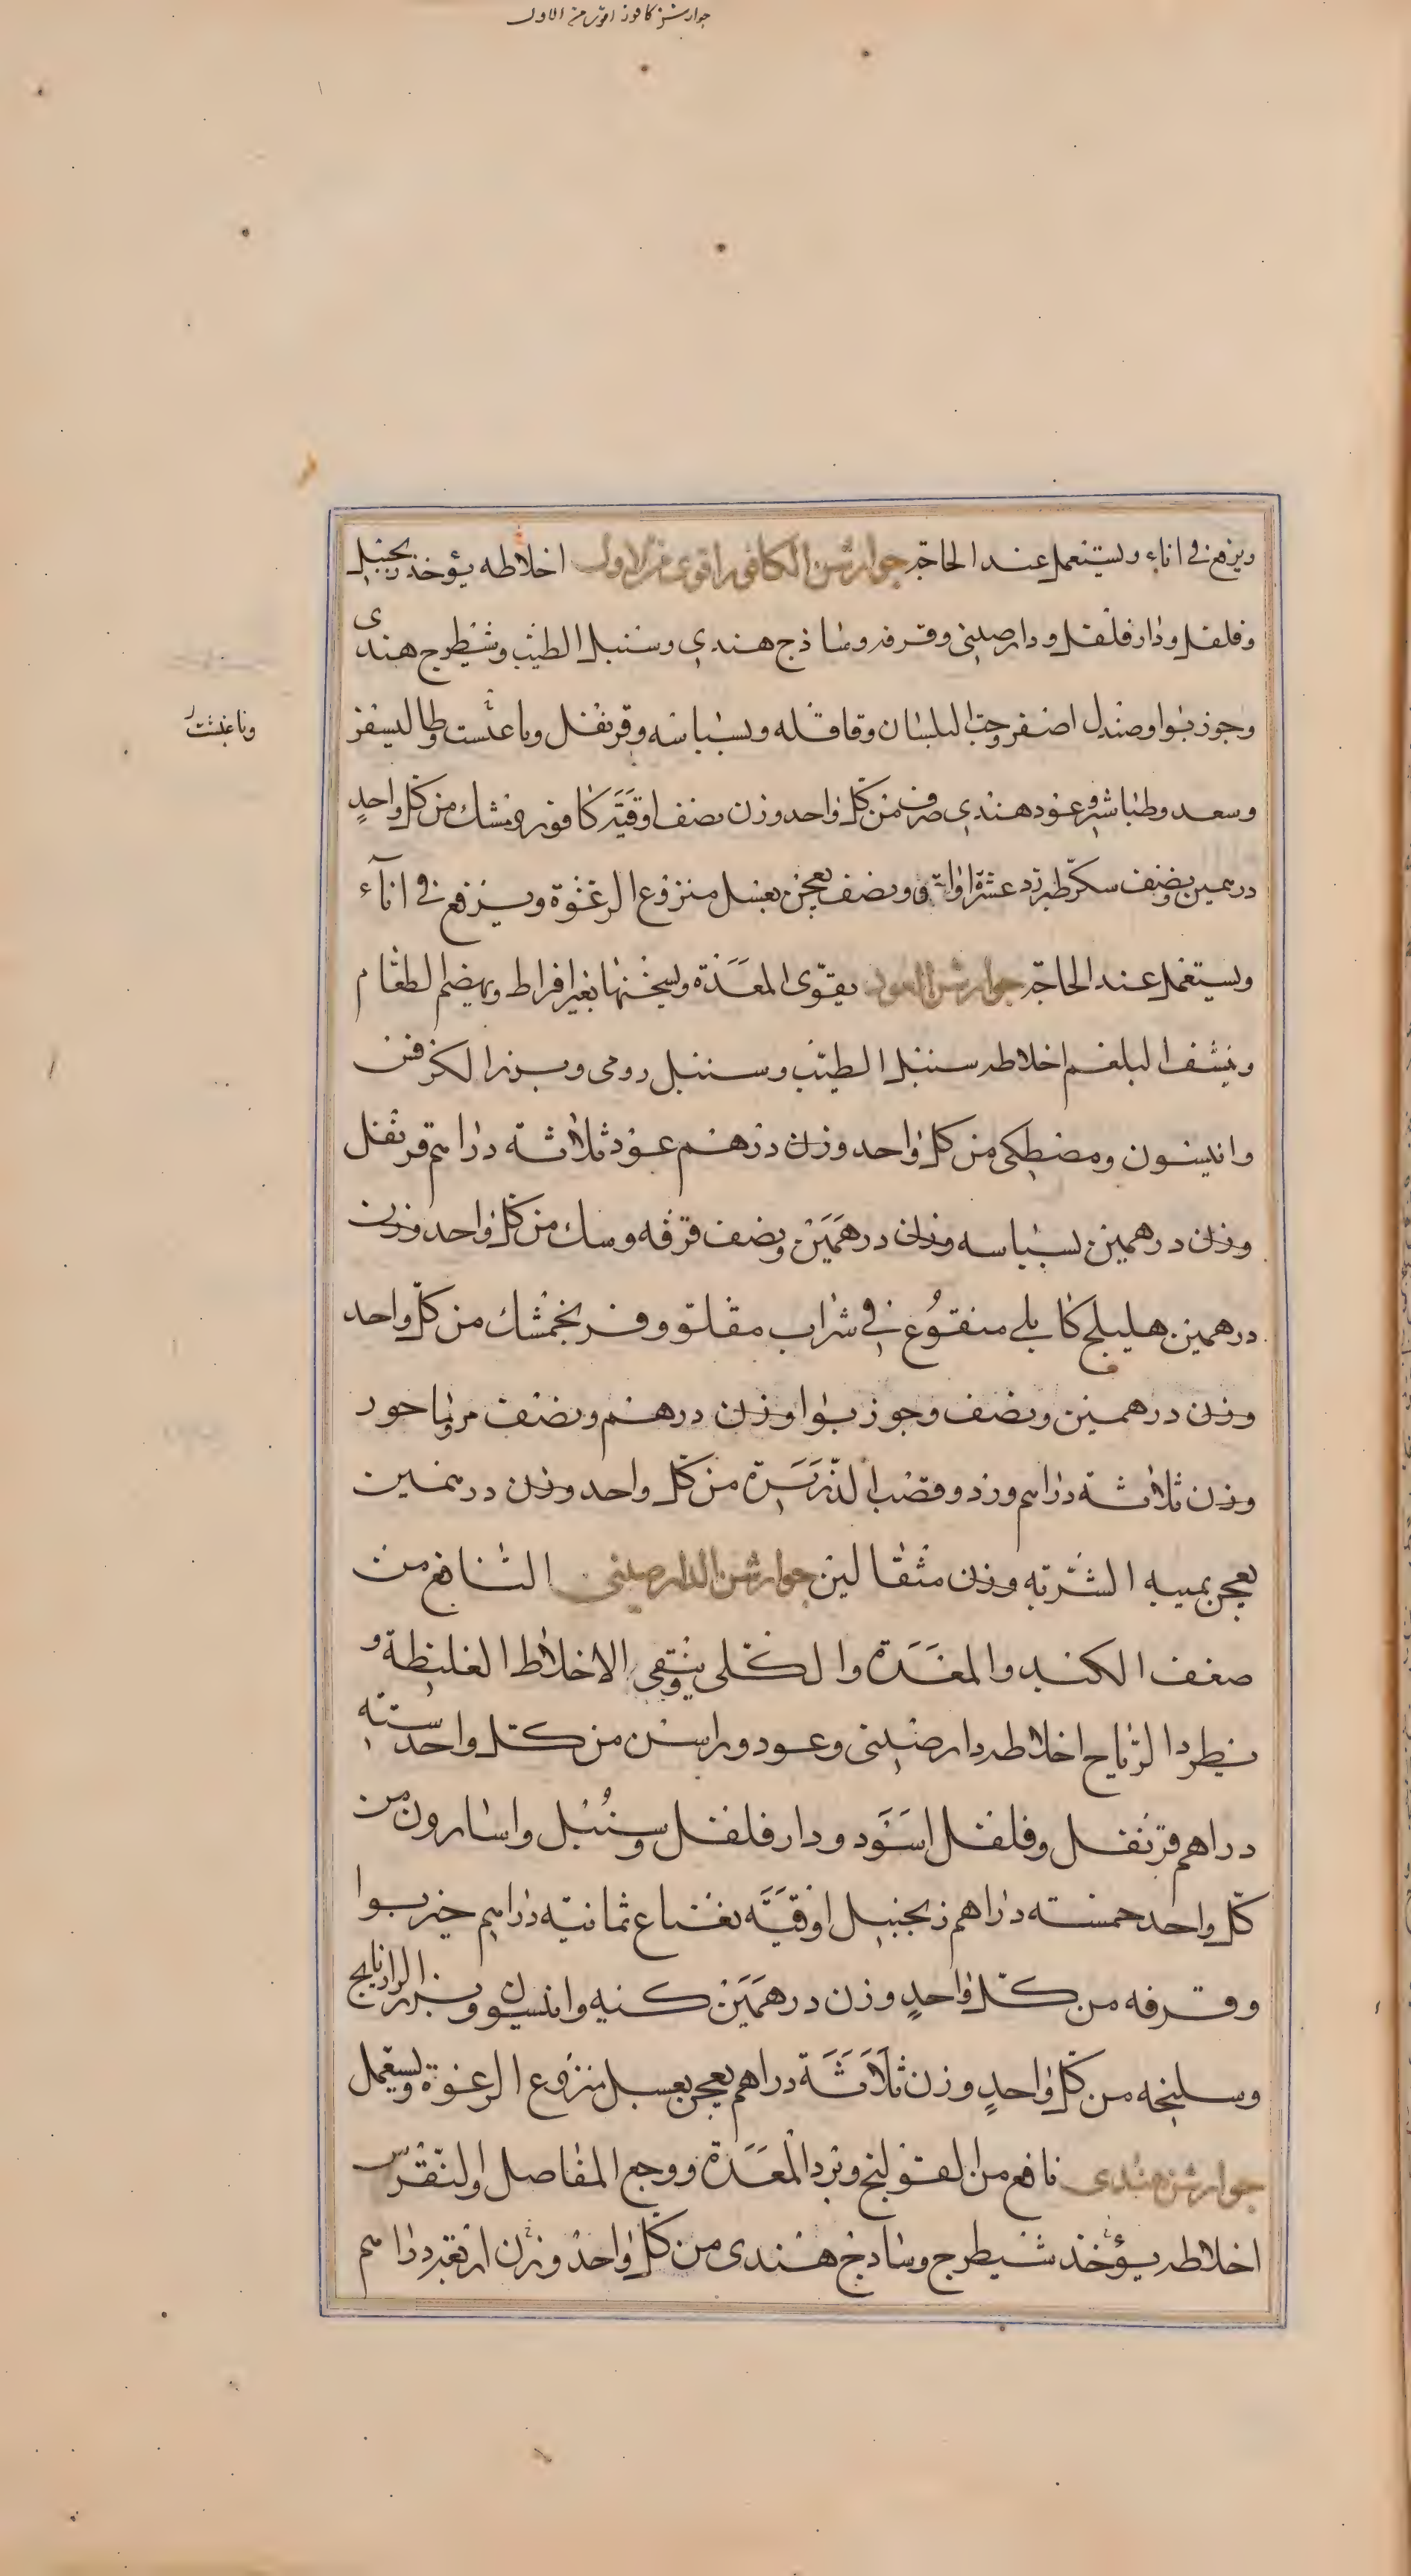 جوارشن كافور اقوى من الاول
ويرفع في اناء ويستعمل عند الحاجة جوارشن الكافور اقوى من الاول اخلاطه يؤخذ زنجبيل
وفلفل ودارفلفل ودارصيني وقرفه وساذج هندي وسنبل الطيب وشيطرج هندى
وجوزبوا وصندل اصفر وحب البلسان وقاقله وبسباسه وقرنفل وناغشت وطاليسفر
وناغشت
وسعد وطباشير وعود هندي صرف من كل واحد وزن نصف اوقيّة كافور ومسك من كل واحدٍ
درهمين ونصف سكّر طبرزد عشرة اواق ونصف يعجن بعسل منزوع الرغوة ويرفع في اناء
ويستعمل عند الحاجة جوارشن العود يقوّى المعدة ويسخنها بغير افراط ويهضم الطعام
وينشف البلغم اخلاطه سنبل الطيب وسنبل رومى وبزر الكرفس
وانيسون ومصطكى من كل واحد وزن درهم عود ثلاثة دراهم قرنفل
وزن درهمين بسباسه وزن درهمين ونصف قرفه وسك من كل واحد وزن
درهمين هليلج كابلي منقوع في شراب مقلو وفرنجمشك من كل واحد
وزن درهمين ونصف وجوزبوا وزن درهم ونصف مرماحور
وزن ثلاثة دراهم ورد وقصب الذريرة من كل واحد وزن درهمين
يعجن بميبه الشربه وزن مثقالين جوارشن الدارصيني النافع من
ضعف الكبد والمعدة والكلى وينقى الاخلاط الغليظة و
يطرد الرياح اخلاطه دارصيني وعود وراسن من كل واحد ستة
دراهم قرنفل وفلفل اسود ودارفلفل وسنبل واسارون من
كل واحد خمسه دراهم زنجبيل اوقيّة نعناع ثمانية دراهم خيربوا
وقرفه من كل واحدٍ وزن درهمين كنيه وانيسون وبزر الرازيانج
وسليخه من كل واحدٍ وزن ثلاثة دراهم يعجن بعسل منزوع الرغوة ويستعمل
جوارشن هندى نافع من القولنج وبرد المعدة ووجع المفاصل والنقرس
اخلاطه يؤخذ شيطرج وساذج هندى من كل واحد وزن اربعة دراهم